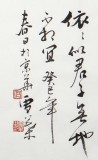 依依似君子無地
不相宜癸巳年
春日於京華雪菜